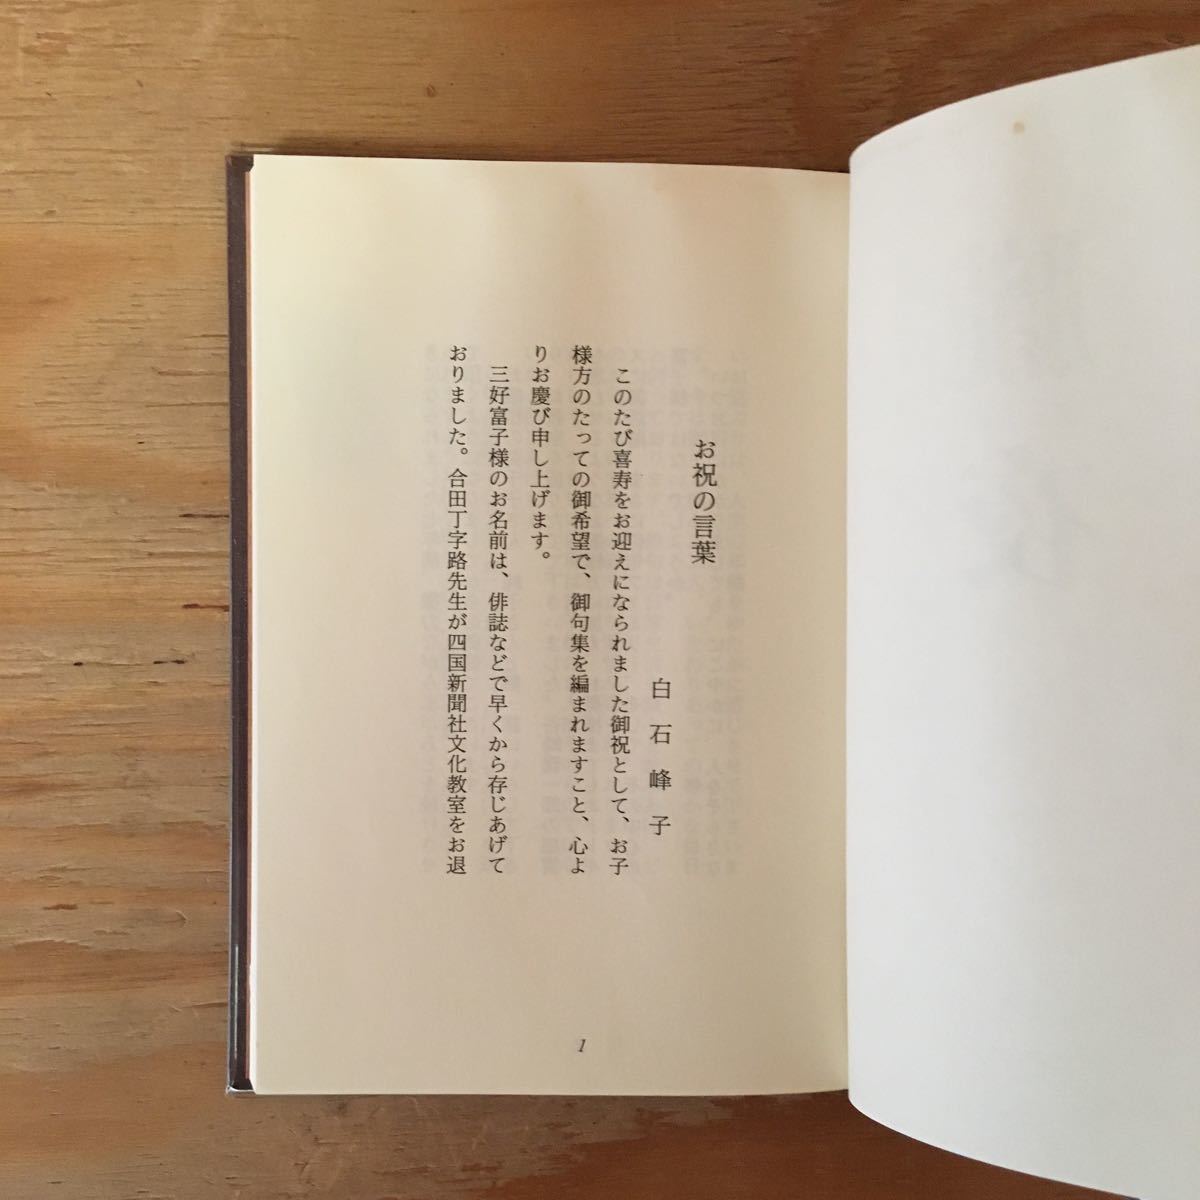 お祝の言葉
白石峰子
このたび喜寿をお迎えになられました御祝として、お子
様方のたっての御希望で、御句集を編まれますこと、心よ
りお慶び申し上げます。
三好富子様のお名前は、俳誌などで早くから存じあげて
おりました。合田丁字路先生が四国新聞社文化教室をお退
1